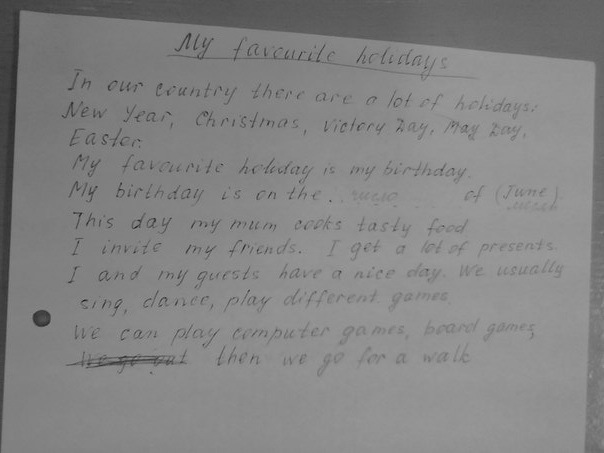 My favourite holidays
In our country there are a lot of holidays:
New Year, Christmas, Victory Day, May Day,
Easter.
My favourite holiday is my birthday.
My birthday is on the . число of (June).
месяц
This day my mum cooks tasty food
I invite my friends. I get a lot of presents.
I and my guests have a nice day. We usually
sing, dance, play different games.
We can play computer games, board games,
We go out then we go for a walk